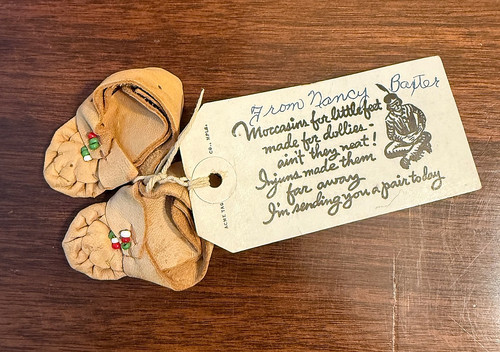 From Nancy Baxter
Moccasins for little feet
made for dollies -
ain't they neat!
Injuns made them
far away
I'm sending you a pair today
ACME TAG CO. MPLS.